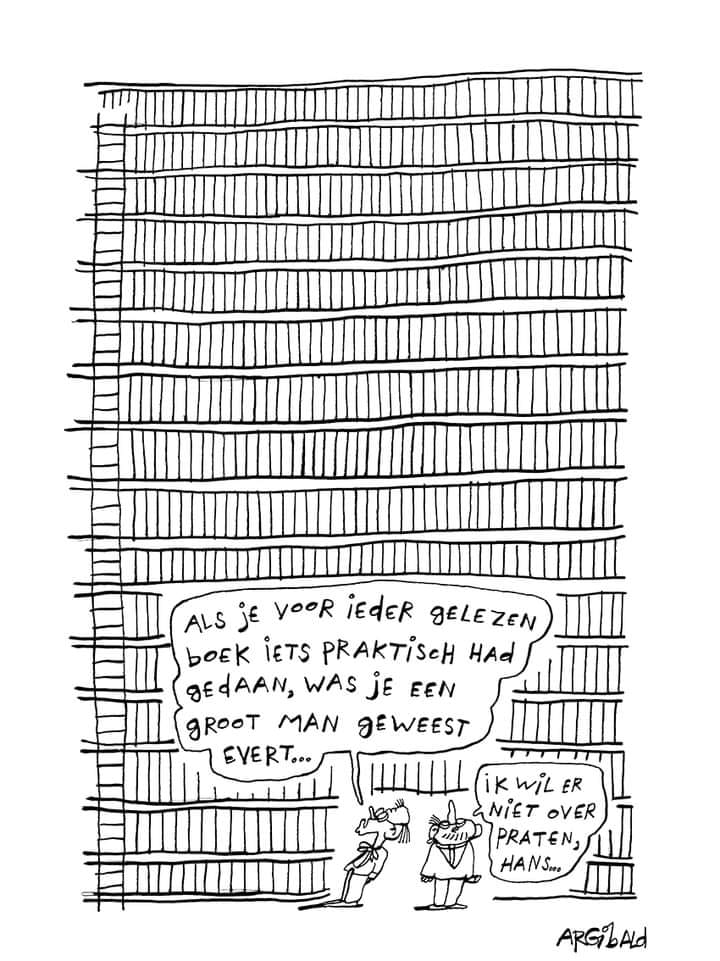 ALS JE VOOR IEDER GELEZEN
BOEK IETS PRAKTISCH HAD
GEDAAN, WAS JE EEN
GROOT MAN GEWEEST
EVERT...
IK WIL ER
NIET OVER
PRATEN,
HANS...
ARGIBALD